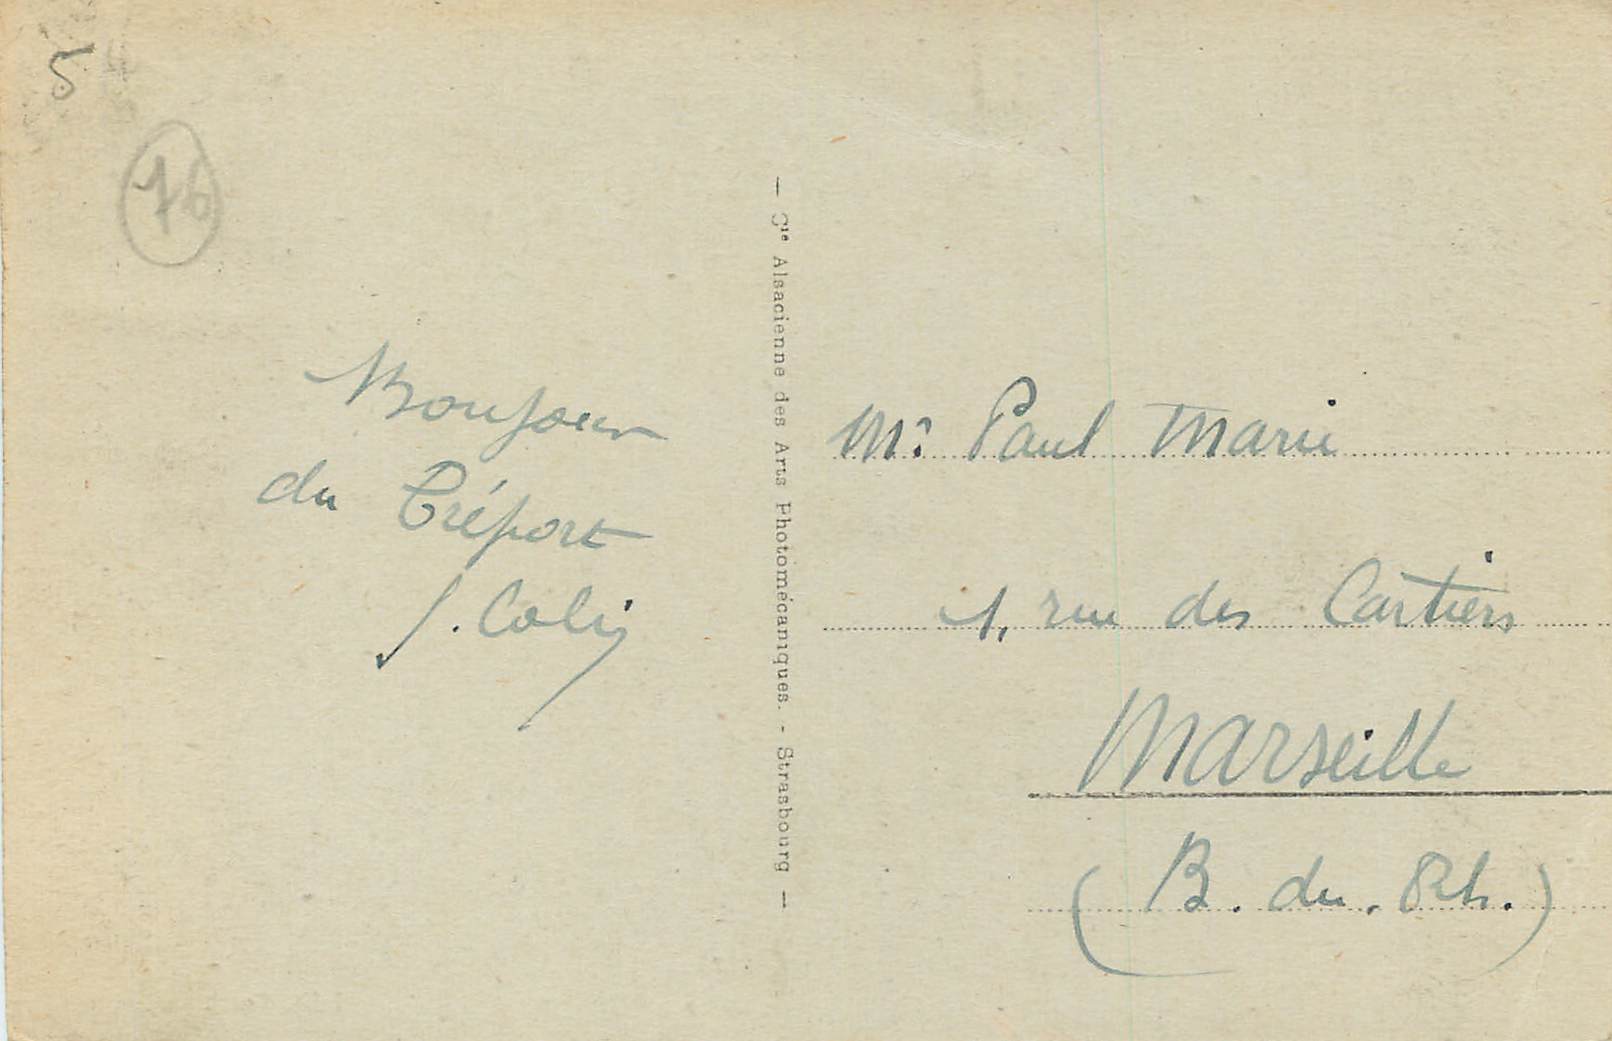 5
76
Bonjour
du Tréport
J. Colin
— Cie Alsacienne des Arts Photomécaniques. - Strasbourg —
Mr Paul Marie
1, rue des Cartiers
Marseille
(B. du. Rh.)